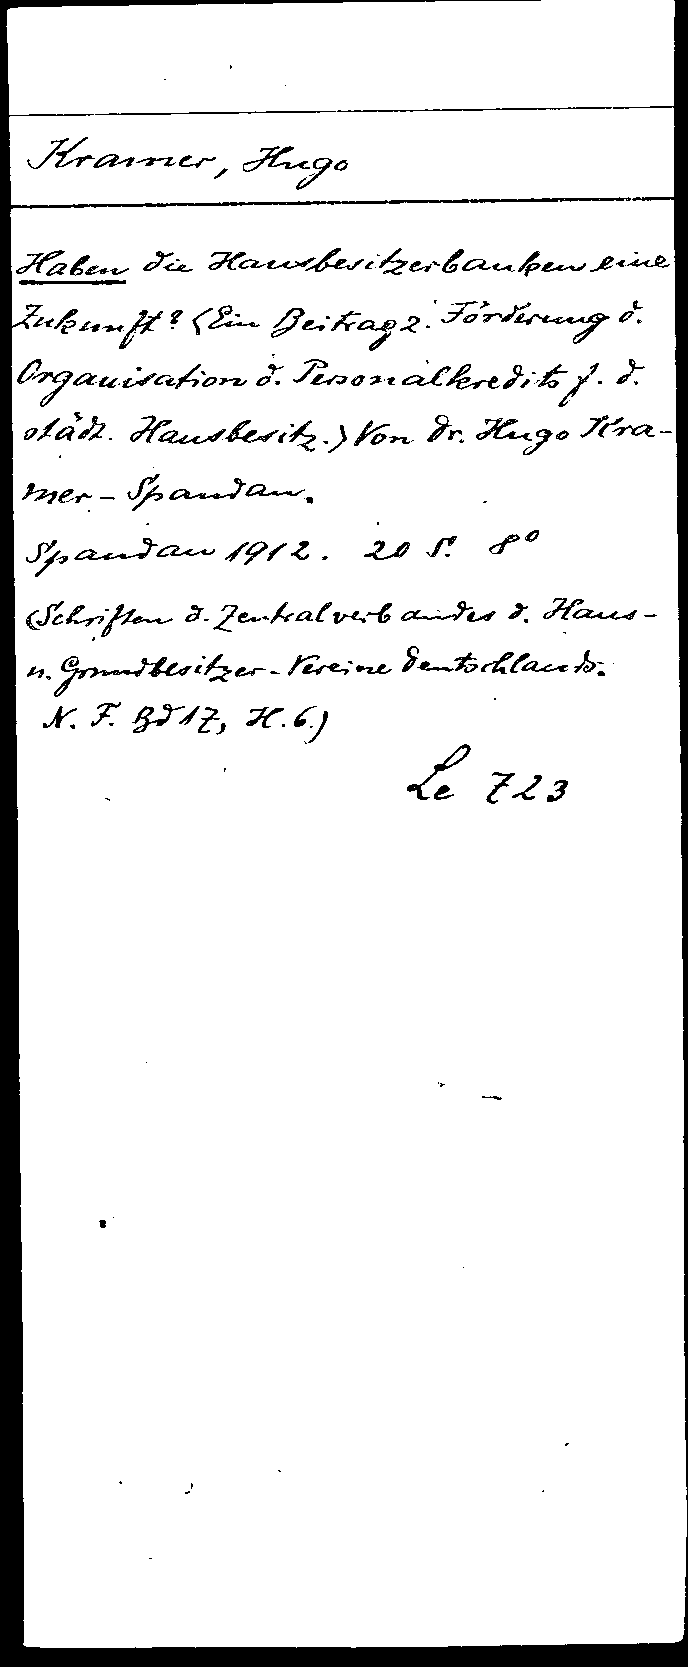 Kramer, Hugo
Haben die Hausbesitzerbanken eine
Zukunft? (Ein Beitrag z. Förderung d.
Organisation d. Personalkredits f. d.
städt. Hausbesitz.) Von Dr. Hugo Kra-
mer-Spandau.
Spandau 1912. 20 S. 8°
(Schriften d. Zentralverbandes d. Haus-
u. Grundbesitzer-Vereine Deutschlands.
N. F. Bd 17, H. 6.)
Le 723